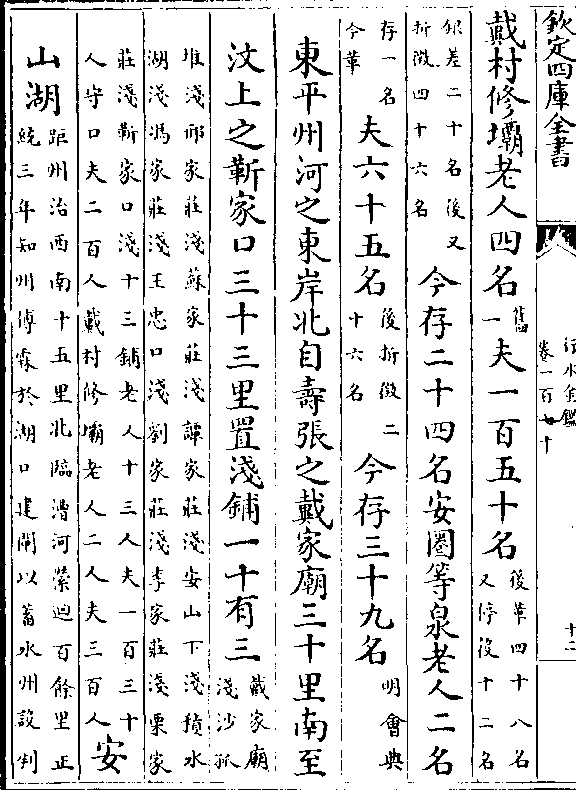 欽定四庫全書
行水金鑑
卷一百七十
十二
戴村修壩老人四名舊一夫一百五十名後革四十八名又停役十二名
銀差二十名後又折徵四十六名今存二十四名安圈等泉老人二名
存一名今革夫六十五名後折徵二十六名今存三十九名明會典
東平州河之東岸北自壽張之戴家廟三十里南至
汶上之靳家口三十三里置淺鋪一十有三戴家廟淺沙孤
堆淺邢家莊淺蘇家莊淺譚家莊淺安山下淺積水
湖淺馮家莊淺王忠口淺劉家莊淺李家莊淺栗家
莊淺靳家口淺十三鋪老人十三人夫一百三十
人守口夫二百人戴村修壩老人二人夫三百人安
山湖距州治西南十五里北臨漕河縈迴百餘里正
統三年知州傅霖於湖口建閘以蓄水州設判